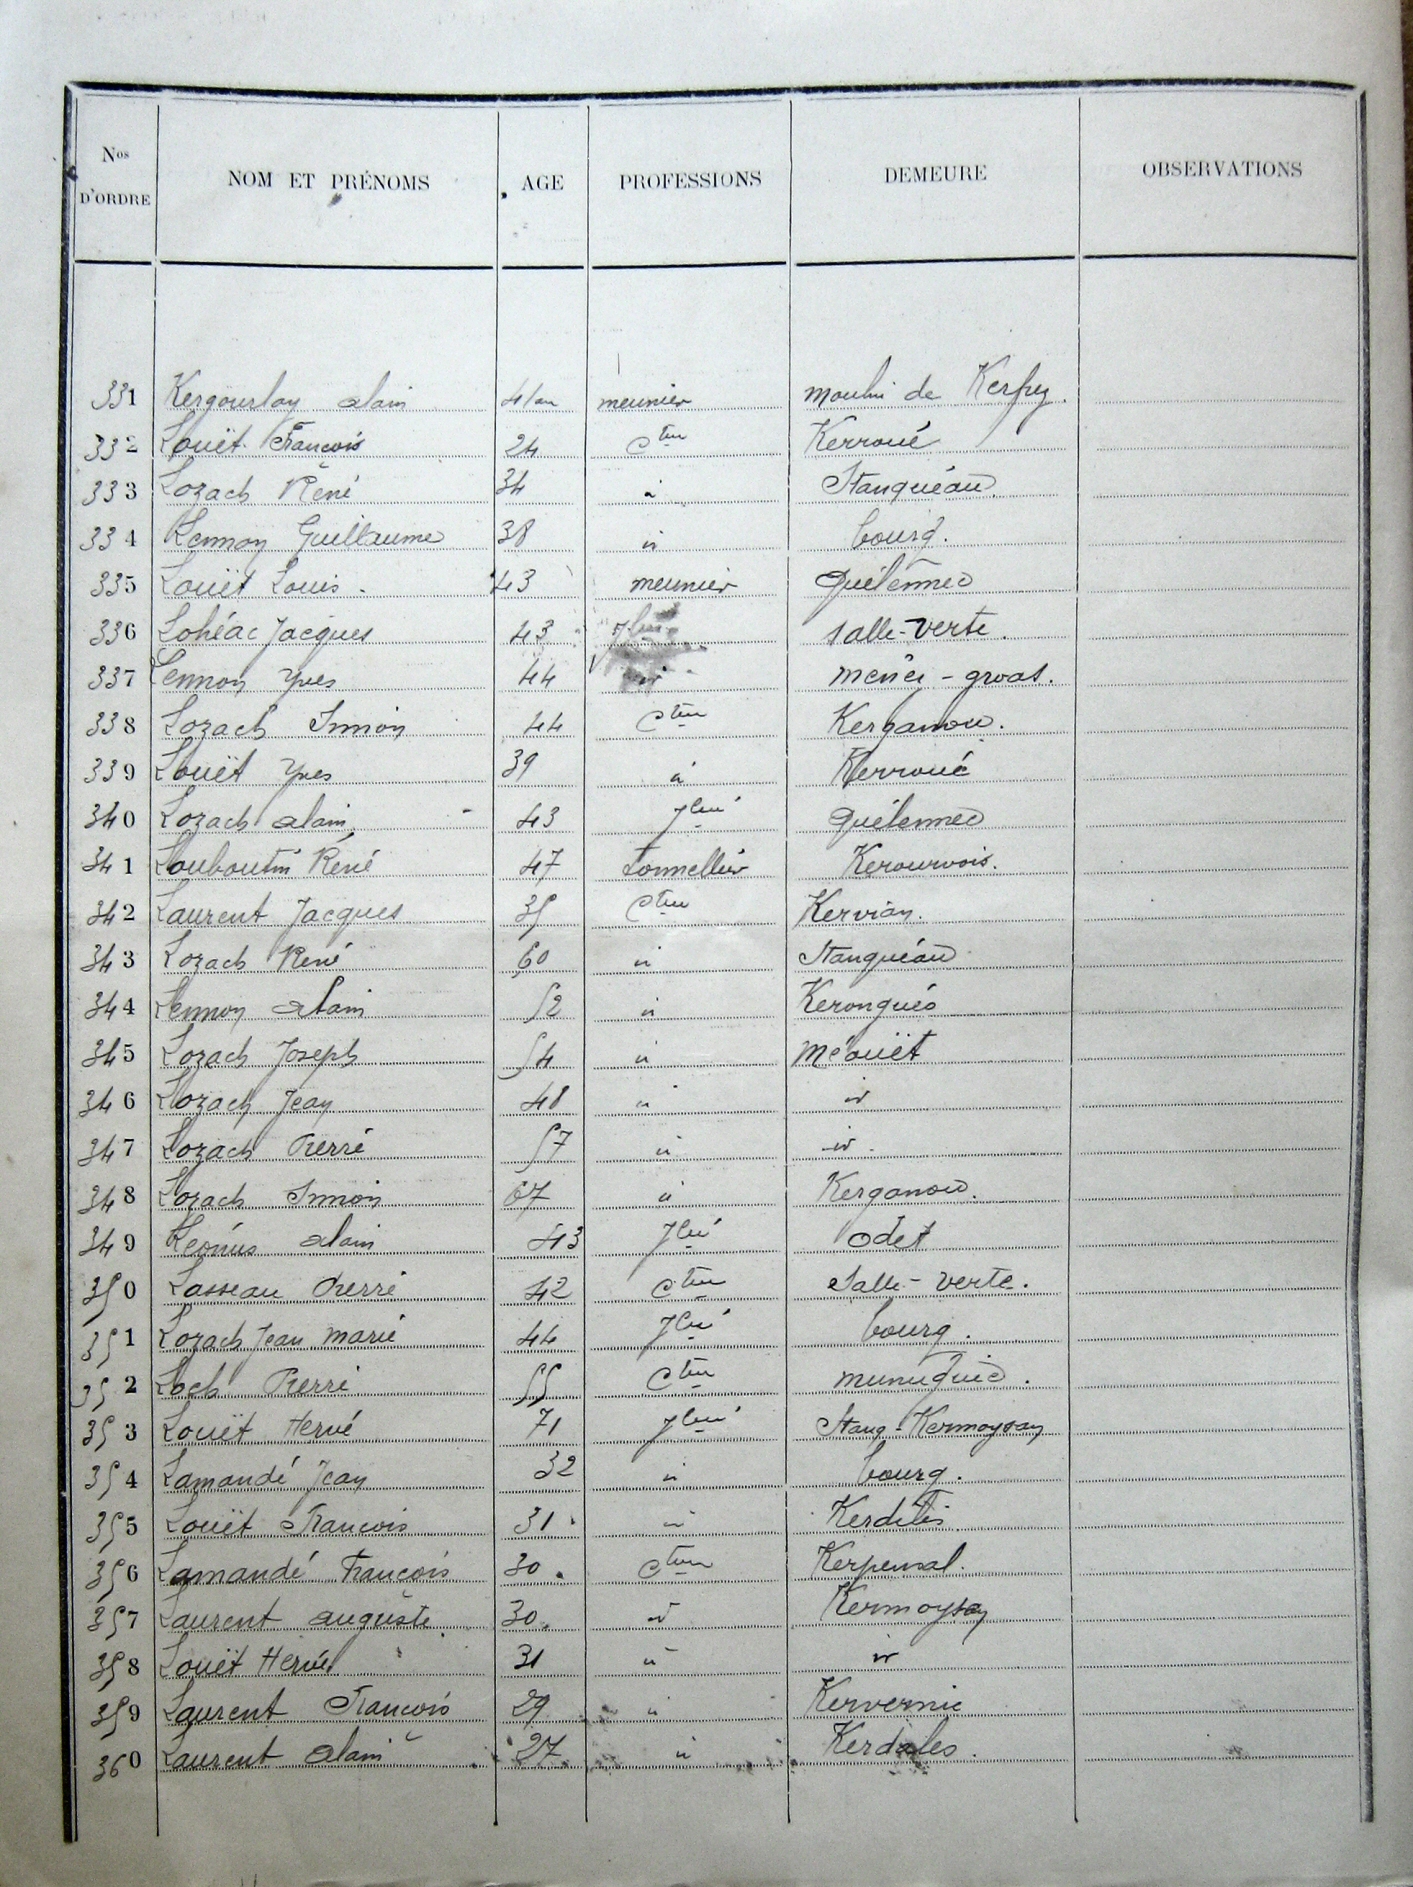 Nos D'ORDRE NOM ET PRÉNOMS AGE PROFESSIONS DEMEURE OBSERVATIONS
331 Kergourlay alain 41 an meunier moulin de
332 Louët François 24 cteur Kerroué
333 Lozach René 34 id Stanquéau
334 Lennon Guillaume 38 id bourg.
335 Louët Louis. 43 meunier Quélennec
336 Lohéac Jacques 43 Jlier salle-verte.
337 Lennon Yves 44 id menez-groas.
338 Lozach Simon 44 cteur Kerganou.
339 Louët Yves 39 id Kerroué
340 Lozach alain 43 Jlier Quélennec
341 Louboutin René 47 tonnellier Kerourvois.
342 Laurent Jacques 35 cteur Kervian.
343 Lozach René 60 id Stanquéau
344 Lennon alain 52 id Kerongués
345 Lozach Joseph 54 id Méouët
346 Lozach Jean 48 id id
347 Lozach Pierre 57 id id
348 Lozach Simon 67 id Kerganou.
349 alain 43 Jlier odet
350 Lasseau Pierre 42 cteur Salle-verte.
351 Lozach Jean marie 44 Jlier bourg.
352 Loch Pierre 55 cteur
353 Louët Hervé 71 Jlier Stang-Kermoysan
354 Lamandé Jean 32 id bourg.
355 Louët François 31 id Kerdilis
356 Lamandé François 30. cteur Kerpensal.
357 Laurent auguste 30. id Kermoysan
358 Louët Hervé 31 id id
359 Laurent François 29 id Kervernic
360 Laurent alain 27 id Kerdalès.